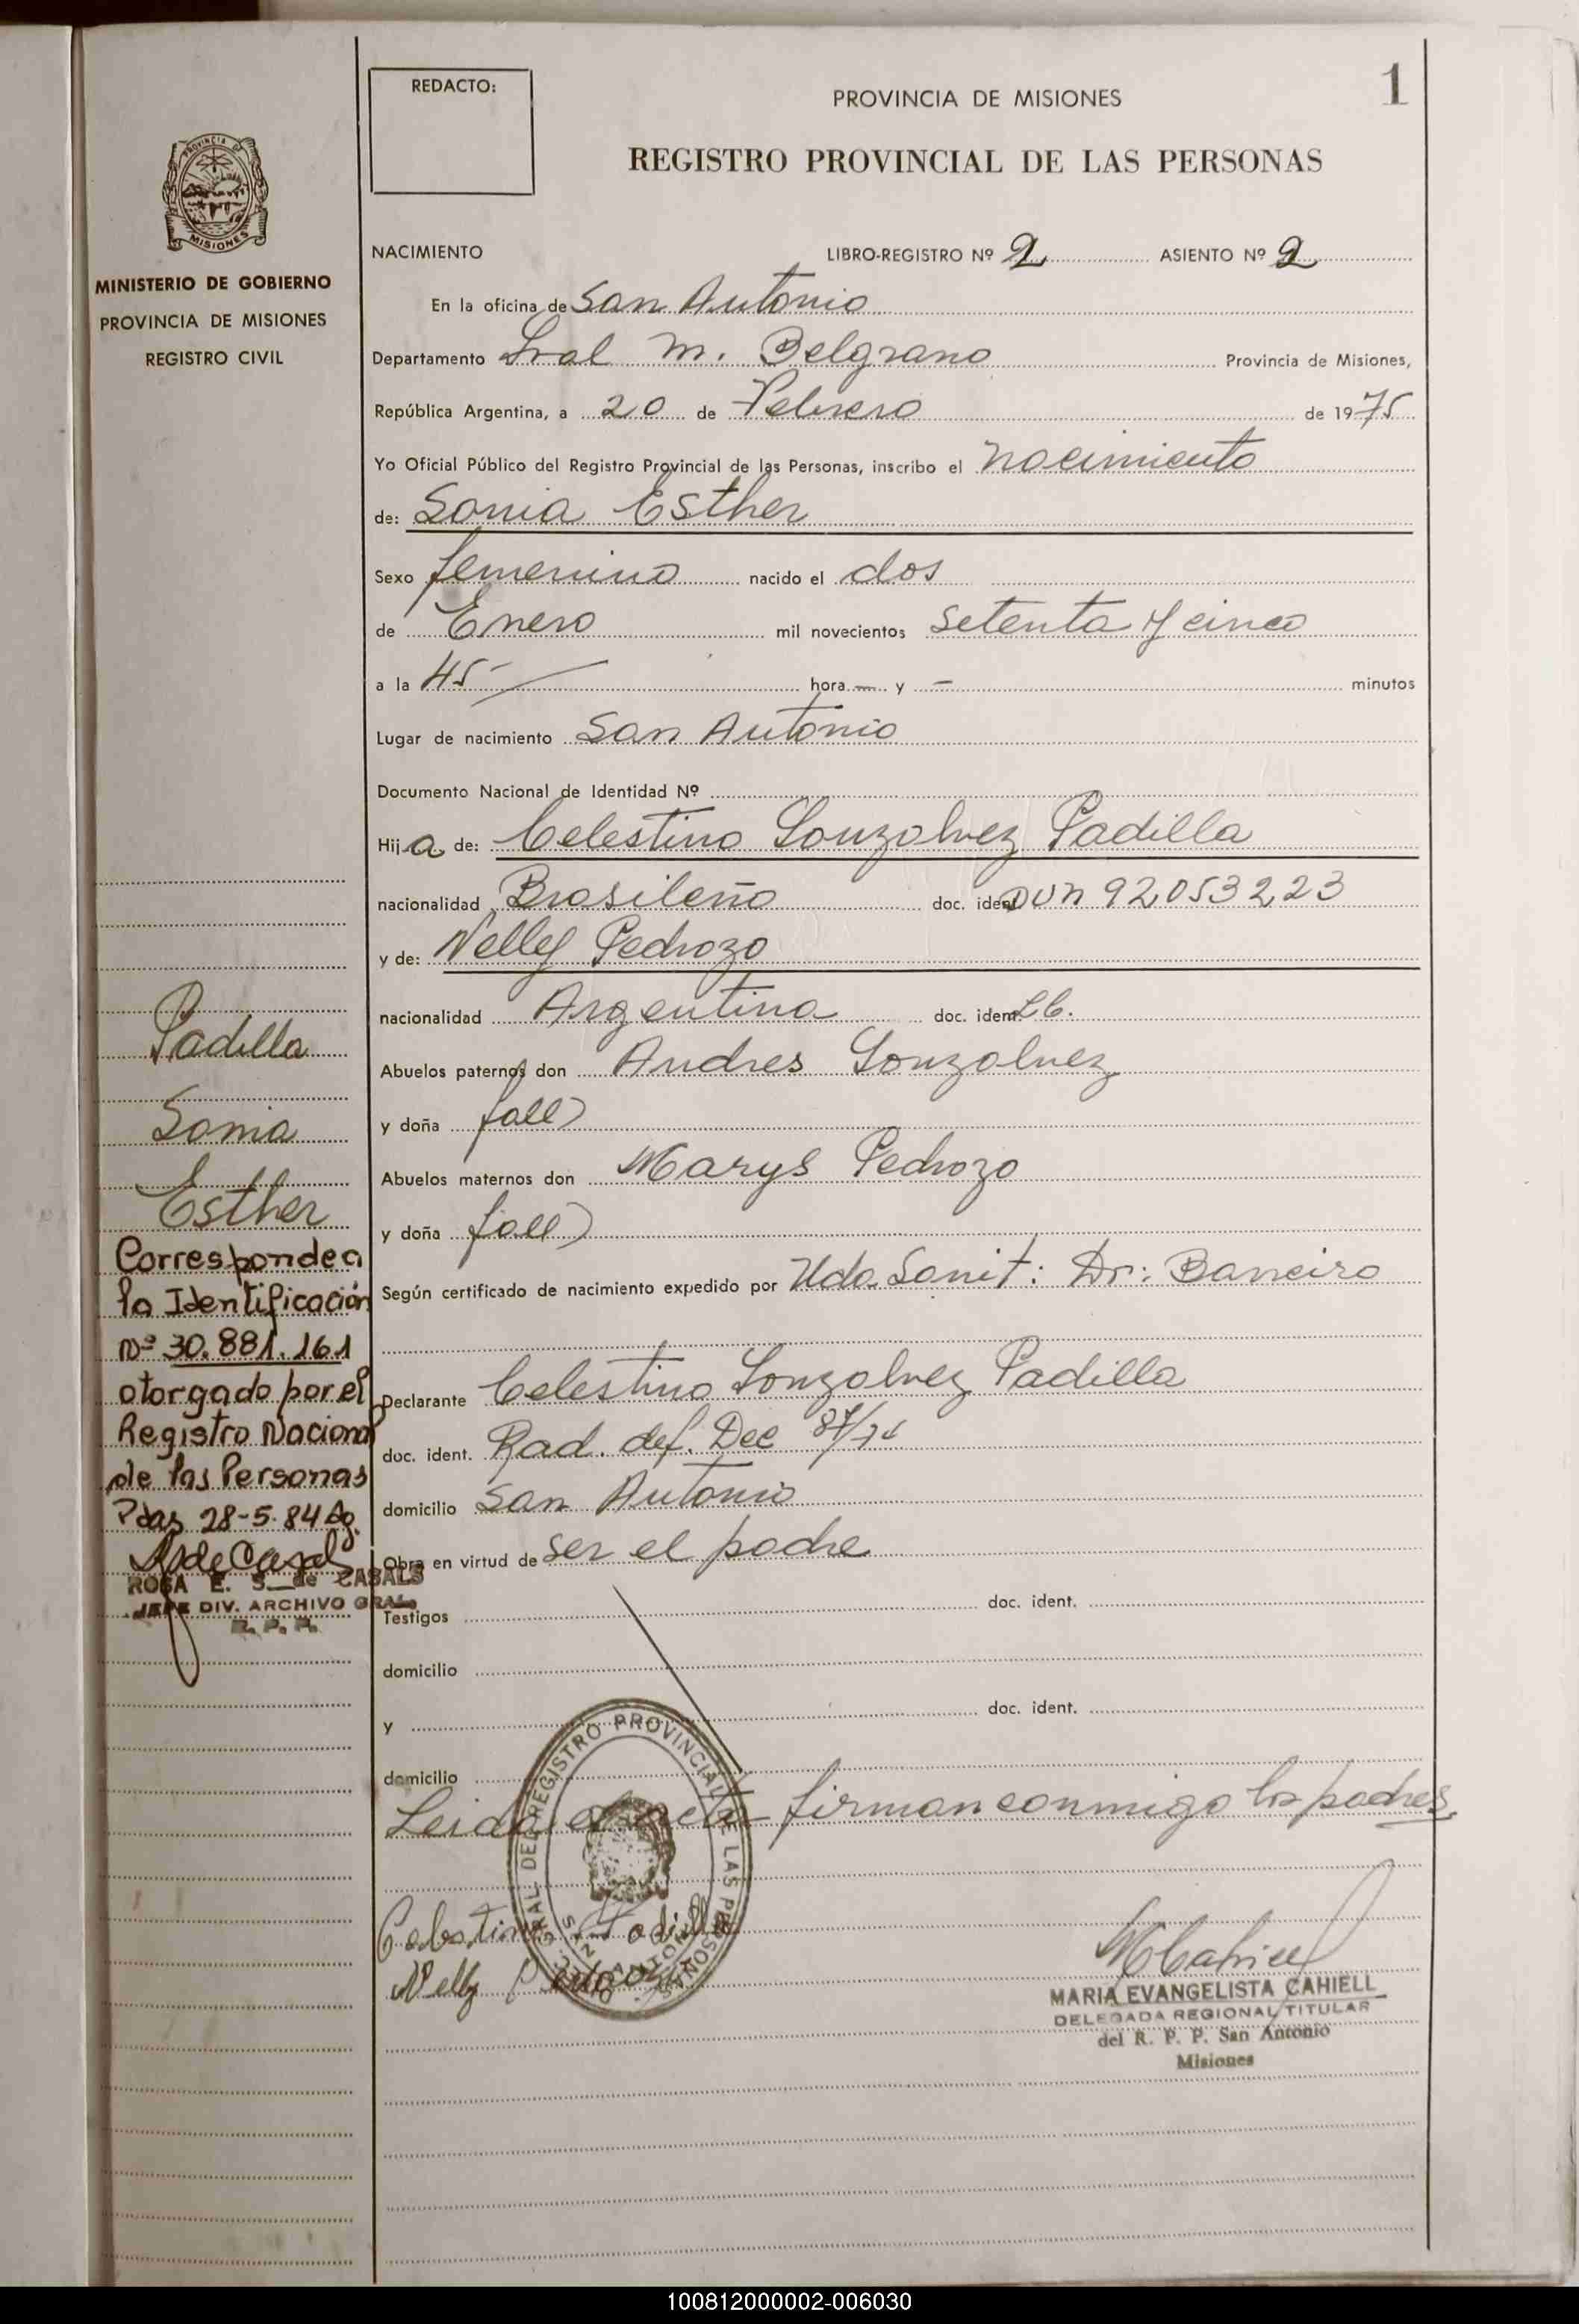 1
REDACTO:
PROVINCIA DE MISIONES
REGISTRO PROVINCIAL DE LAS PERSONAS
PROVINCIA D
MISIONES
MINISTERIO DE GOBIERNO
PROVINCIA DE MISIONES
REGISTRO CIVIL
NACIMIENTO LIBRO-REGISTRO Nº 2 ASIENTO Nº 2
En la oficina de San Antonio
Departamento Gral M. Belgrano Provincia de Misiones,
República Argentina, a 20 de Febrero de 1975
Yo Oficial Público del Registro Provincial de las Personas, inscribo el nacimiento
de: Sonia Esther
Sexo femenino nacido el dos
de Enero mil novecientos setenta y cinco
a la 45 hora — y — minutos
Lugar de nacimiento San Antonio
Documento Nacional de Identidad Nº
Hija de: Celestino Gonzalvez Padilla
nacionalidad Brasileño doc. ident 92053223
y de: Nelly Pedrozo
nacionalidad Argentina doc. ident
Abuelos paternos don Andres Gonzalvez
y doña fall)
Abuelos maternos don Marys Pedrozo
y doña fall)
Según certificado de nacimiento expedido por Uda Sanit: Dr: Barreiro
Declarante Celestino Gonzalvez Padilla
doc. ident. Rad. def. Dec 87/74
domicilio San Antonio
Obra en virtud de ser el padre
Testigos doc. ident.
domicilio
y doc. ident.
domicilio
Leida el acta firman conmigo los padres
Padilla
Sonia
Esther
Corresponde a
la Identificación
Nº 30.881.161
otorgado por el
Registro Nacional
de las Personas
Pdas 28-5-84
ROSA E. S. de CASALS
JEFE DIV. ARCHIVO GRAL.
R. P. P.
GRAL DEL REGISTRO PROVINCIAL DE LAS PERSONAS
SAN ANTONIO
Celestino Padilla
Nelly Pedrozo
MCahiell
MARIA EVANGELISTA CAHIELL
DELEGADA REGIONAL TITULAR
del R. P. P. San Antonio
Misiones
100812000002-006030